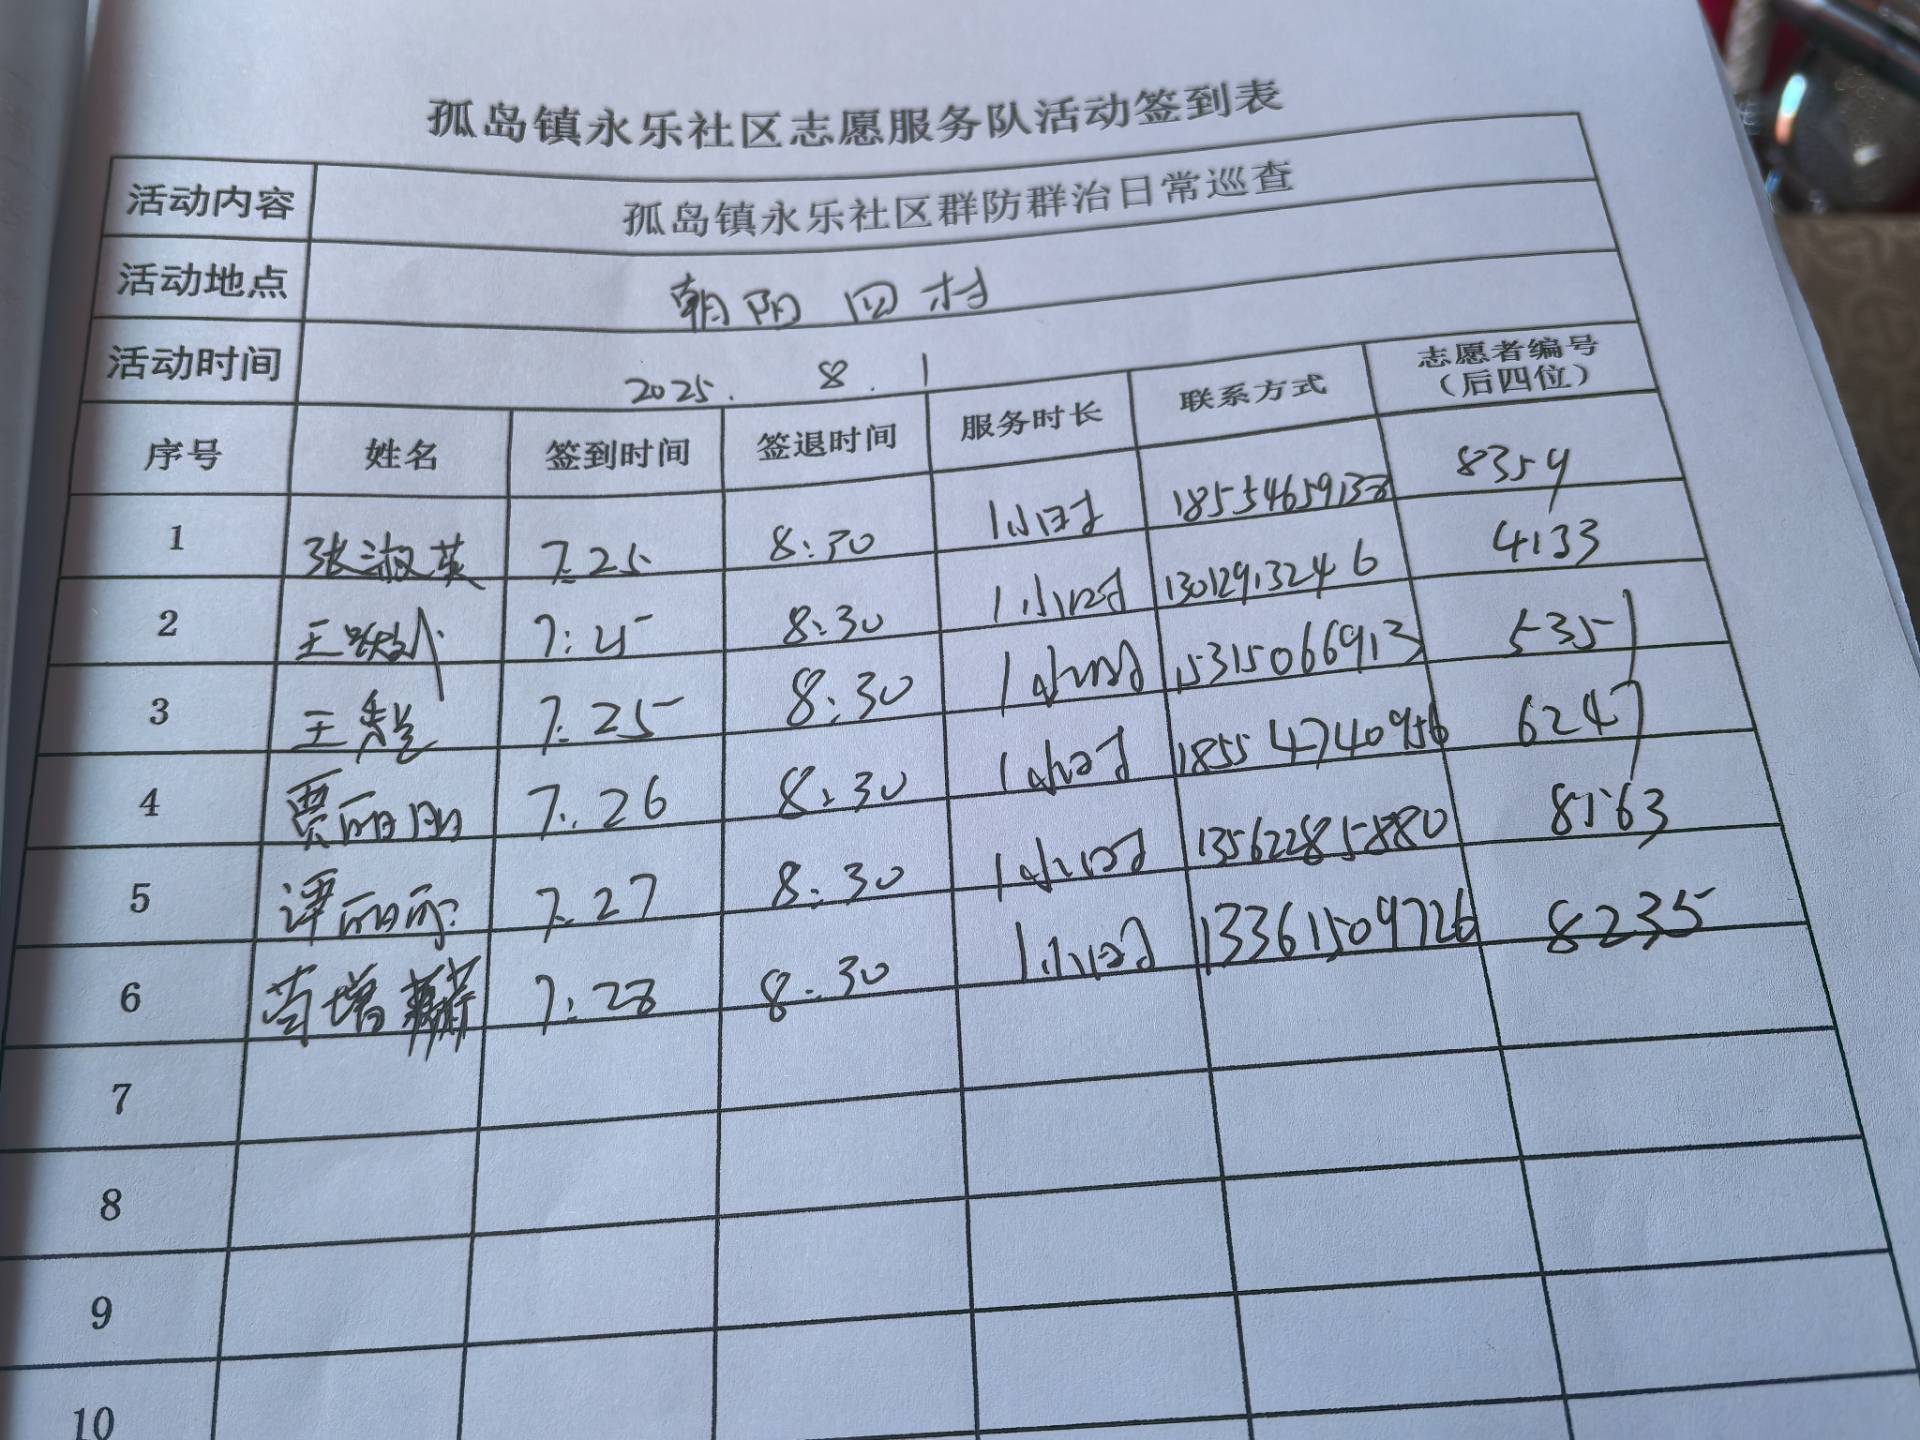 孤岛镇永乐社区志愿服务队活动签到表
活动内容 孤岛镇永乐社区群防群治日常巡查
活动地点 朝阳四村
活动时间 2025. 8. 1
序号 姓名 签到时间 签退时间 服务时长 联系方式 志愿者编号（后四位）
1 张淑英 7:25 8:30 1小时 18554659138 8359
2 王 8:30 1小时 13012913246 4133
3 王 7:25 8:30 1小时 15315066913 5357
4 贾丽 7:26 8:30 1小时 18554740956 6247
5 谭丽丽 7:27 8:30 1小时 13562285880 8563
6 增 7:28 8:30 1小时 13361509726 8235
7
8
9
10